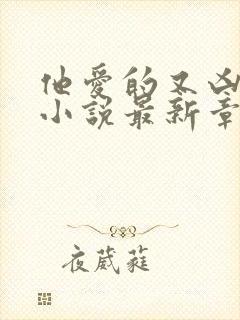 他爱的又凶
小说最新章
夜葳蕤